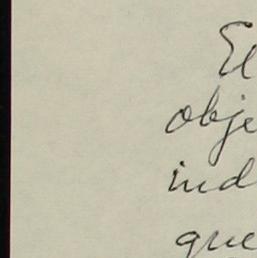 El
obje
ind
que